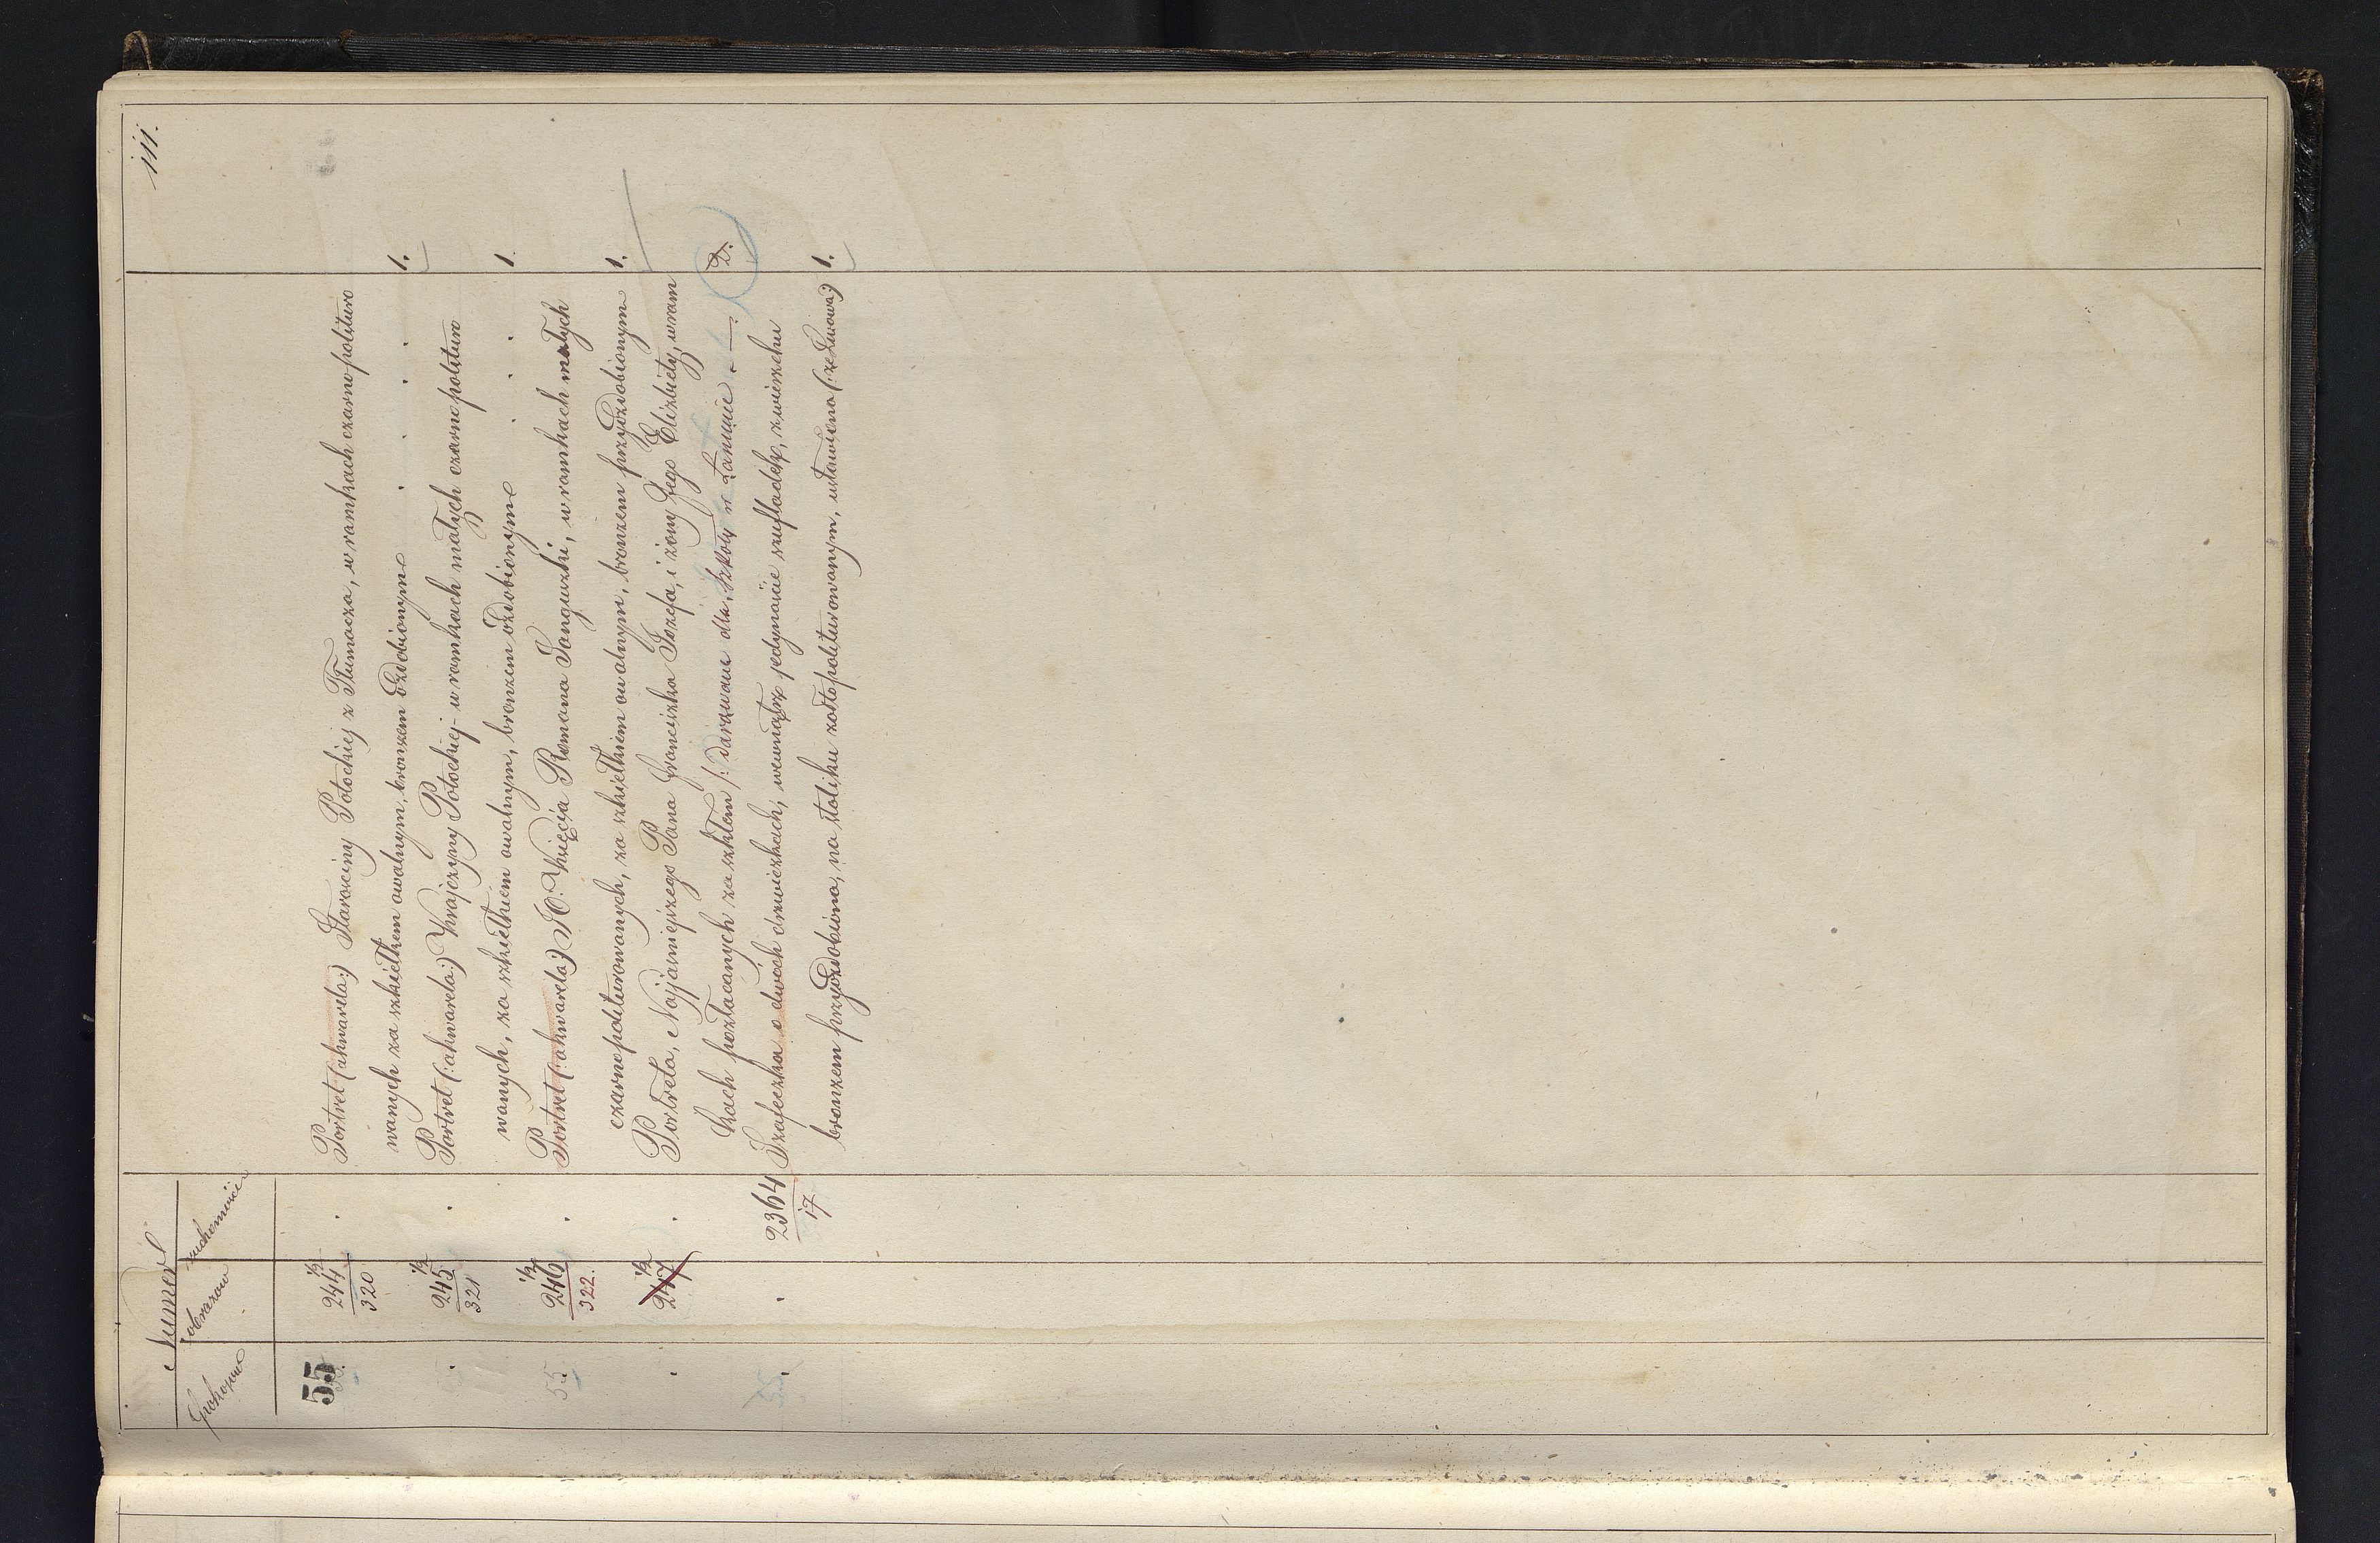 111.
Numer
Pokoju obrazów ruchomości
55 244 1/2 / 320 . Portret (:akwarela:) Starościny Potockiej z Tłumacza, w ramkach czarnopolituro
wanych za szkiełkem owalnym, bronzem ozdobionym . . . . 1.
. 245 1/2 / 321 . Portret (:akwarela:) Krajczyny Potockiej w ramkach małych czarnopolituro
wanych, za szkiełkiem owalnym, bronzem ozdobionym . . . 1
55 246 1/2 / 322. . Portret (:akwarela:) JO: Księcia Romana Sanguszki, w ramkach małych
czarnopoliturowanych, za szkiełkiem owalnym, bronzem przyozdobionym 1.
. 247 1/2 . Portreta, Najjaśniejszego Pana Franciszka Józefa, i żony Jego Elizbiety, w ram
kach pozłacanych za szkłem /: darowane dla szkoły w Łańcucie . — . 2.
. . 2364 / 17 Szafeczka o dwóch drzwiczkach, wewnątrz jedynaście szufladek, z wierzchu
bronzem przyozdobiona, na stoliku żółto politurowanym, ustawiona (: ze Lwowa:) 1.